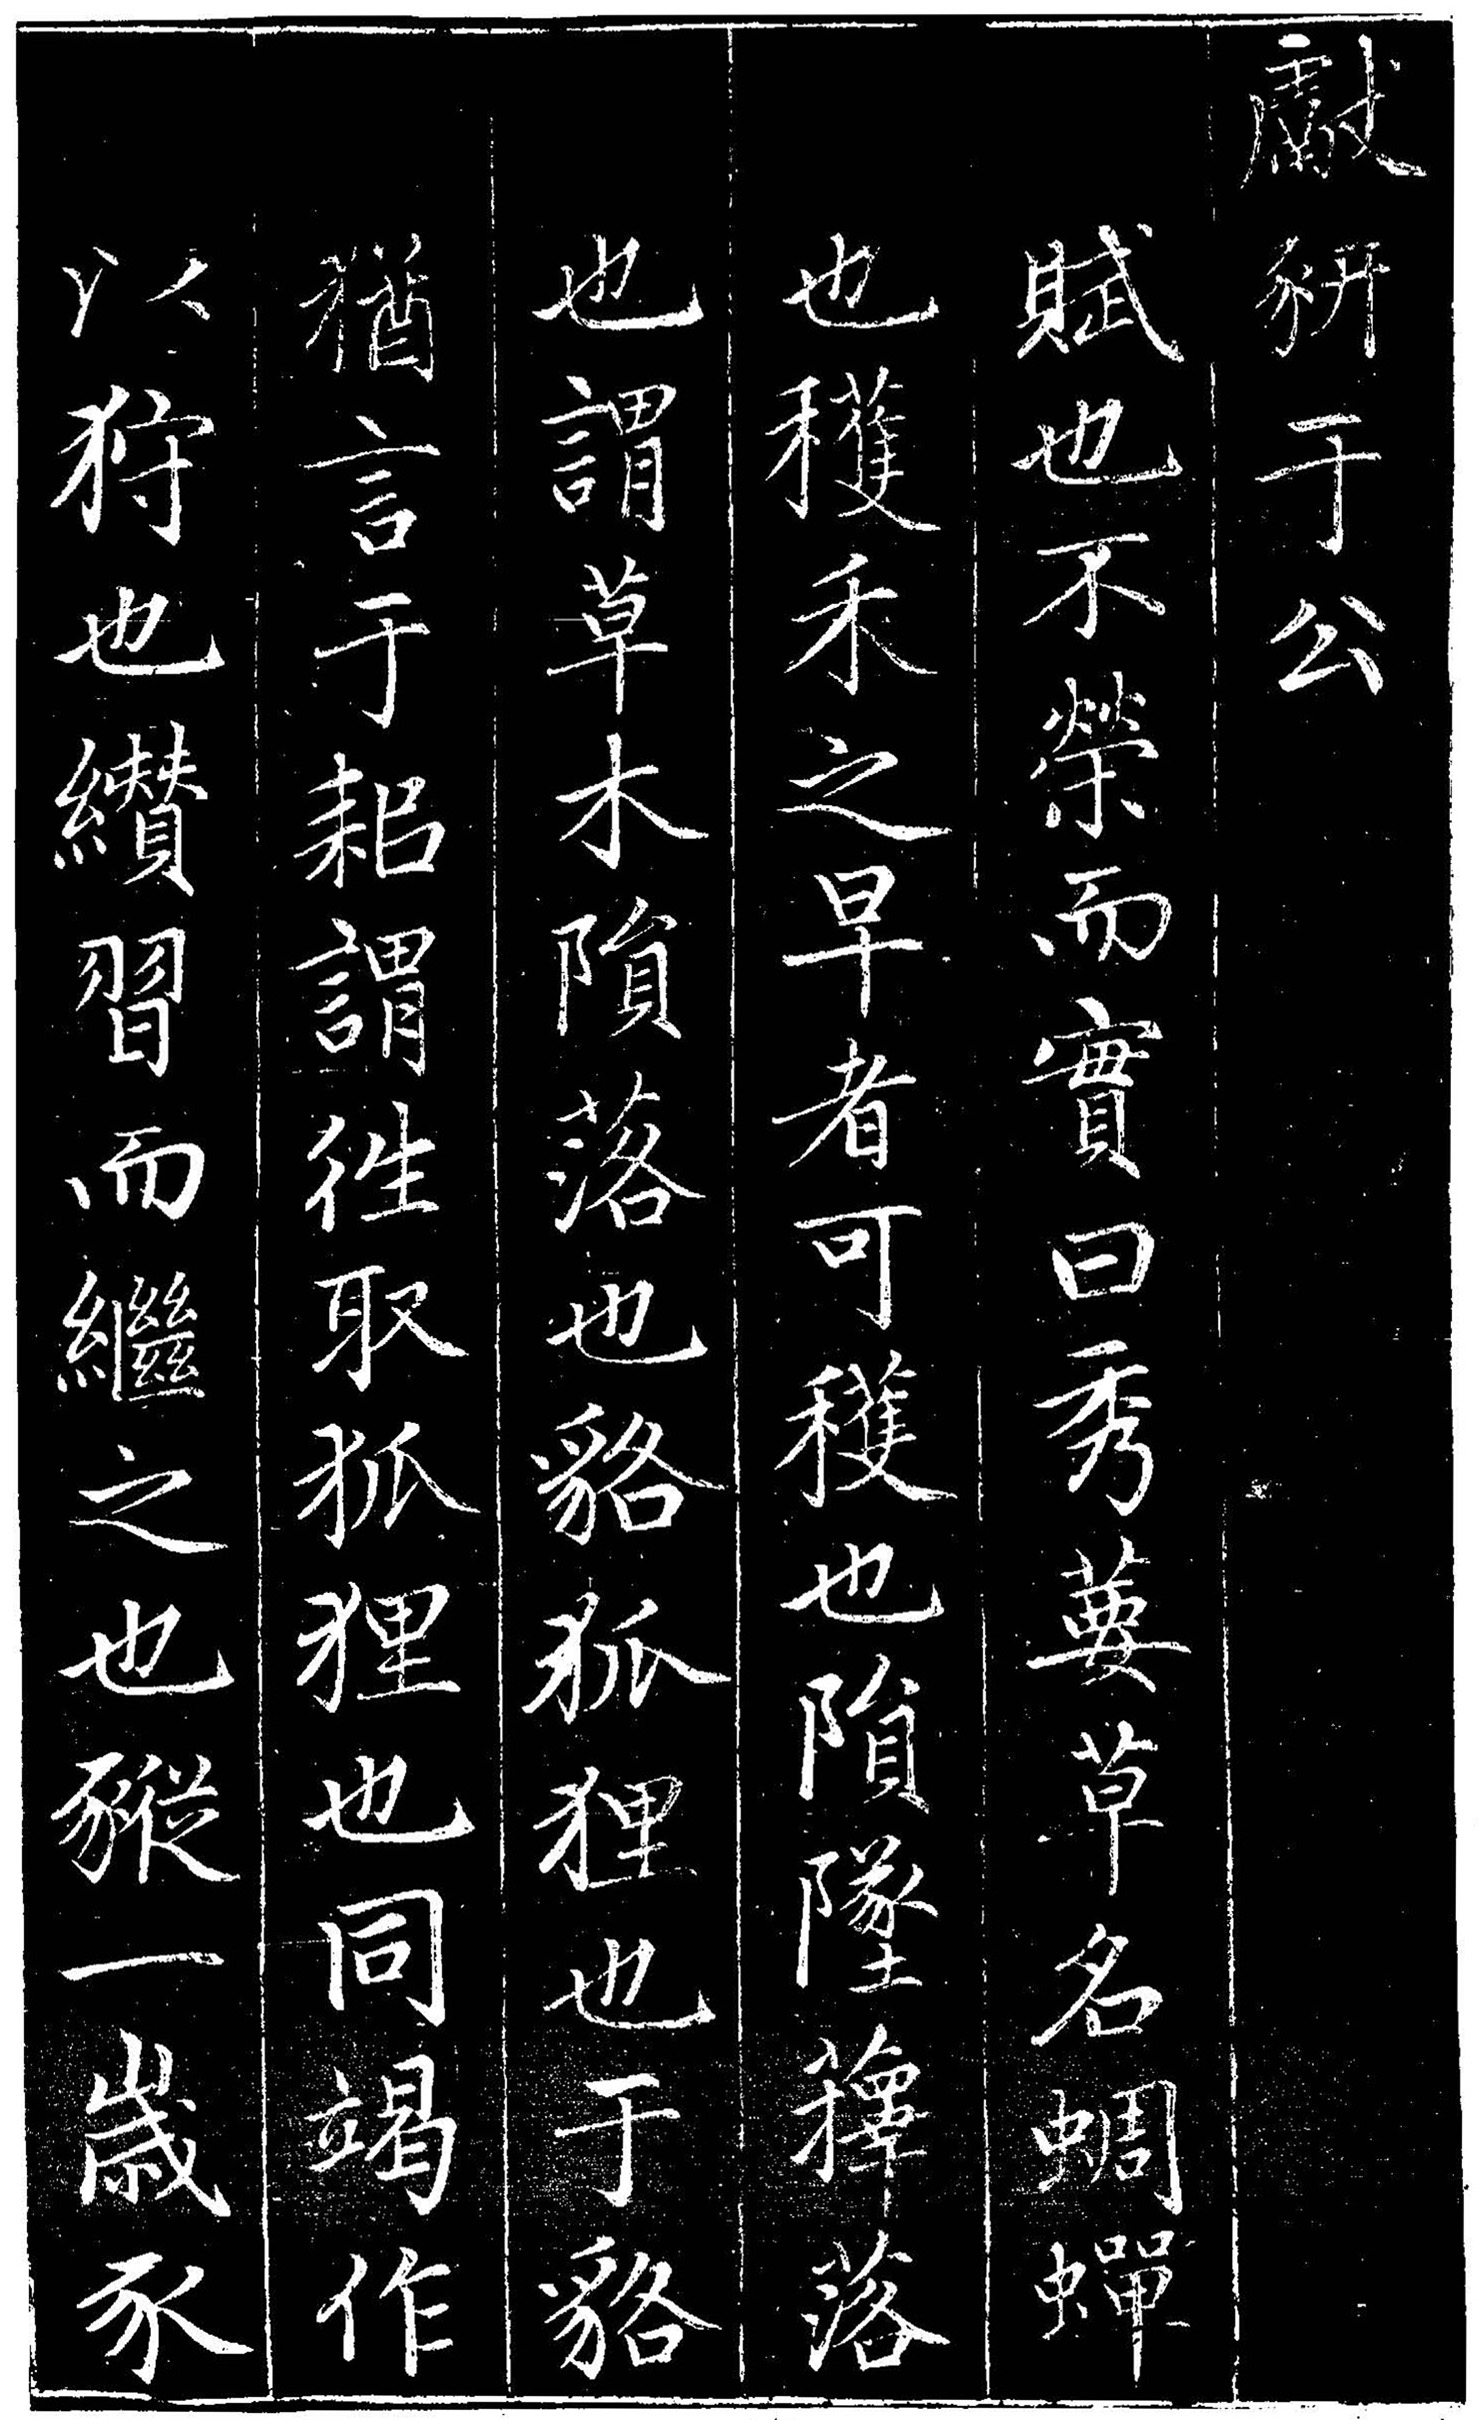 獻豜于公
賦也不榮而實曰秀葽草名蜩蟬
也穫禾之早者可穫也隕墜蘀落
也謂草木隕落也貉狐狸也于貉
猶言于耜謂徃取狐狸也同竭作
以狩也纘習而繼之也豵一歲豕